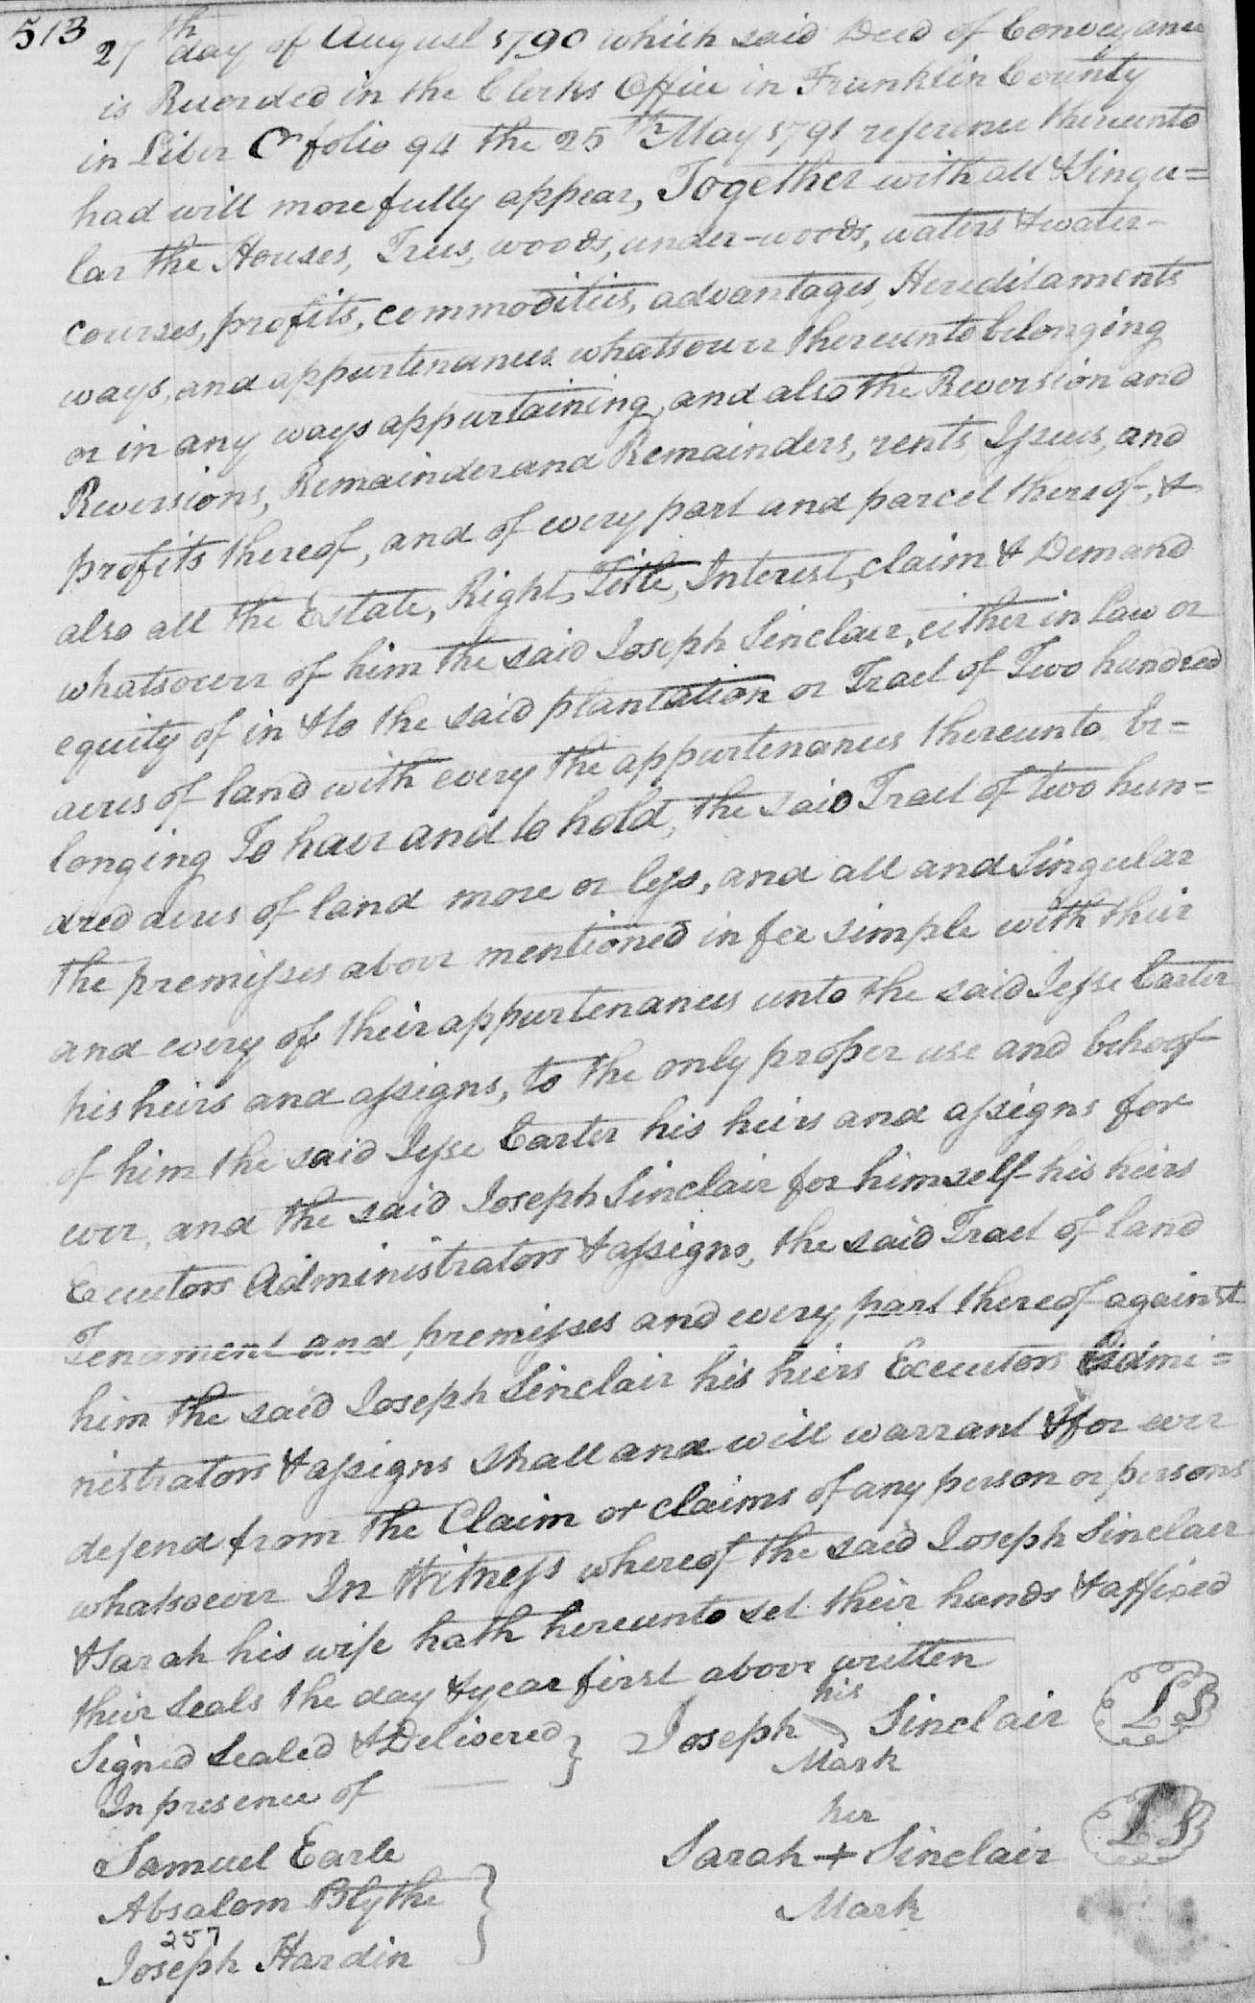 513
27th day of August 1790 which said Deed of Conveyance
is Recorded in the Clerks Office in Franklin County
in Liber C folio 94 the 25th May 1791 reference thereunto
had will more fully appear, Together with all & Singu=
lar the Houses, Trees, woods, under-woods, waters & water-
courses, profits, commodities, advantages, Hereditaments
ways, and appurtenances whatsoever thereunto belonging
or in any ways appurtaining, and also the Reversion and
Reversions, Remainder and Remainders, rents, Issues, and
profits thereof, and of every part and parcel thereof, &
also all the Estate, Right, Title, Interest, claim & Demand
whatsoever of him the said Joseph Sinclair, either in law or
equity of in & to the said plantation or Tract of Two hundred
acres of land with every the appurtenances thereunto be=
longing To have and to hold, the said Tract of two hun=
dred acres of land more or less, and all and Singular
the premisses above mentioned in fee simple with their
and every of their appurtenances unto the said Jesse Carter
his heirs and assigns, to the only proper use and behoof
of him the said Jesse Carter his heirs and assigns for
ever, and the said Joseph Sinclair for himself his heirs
Executors Administrators & assigns, the said Tract of land
Tenament and premisses and every, part thereof against
him the said Joseph Sinclair his heirs Executors Admi=
nistrators & assigns shall and will warrant & for ever
defend from the Claim or claims of any person or persons
whatsoever In Witness whereof the said Joseph Sinclair
& Sarah his wife hath hereunto set their hands & affixed
their Seals the day & year first above written
Signed Sealed & Delivered } his
Joseph Sinclair LS
Mark
In presence of
her
Samuel Earle
Sarah + Sinclair LS
Absalom Blythe }
Mark
257
Joseph Hardin